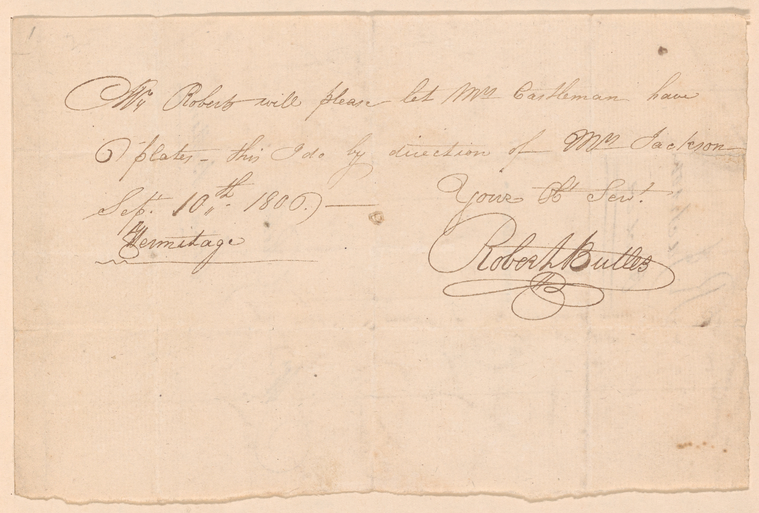 1
Mr Roberts will please let Mrs Castleman have
6 plates - this I do by direction of Mrs Jackson
Sept. 10th. 1806) —
Yours Ob Serv.t
Hermitage
Robert Butler